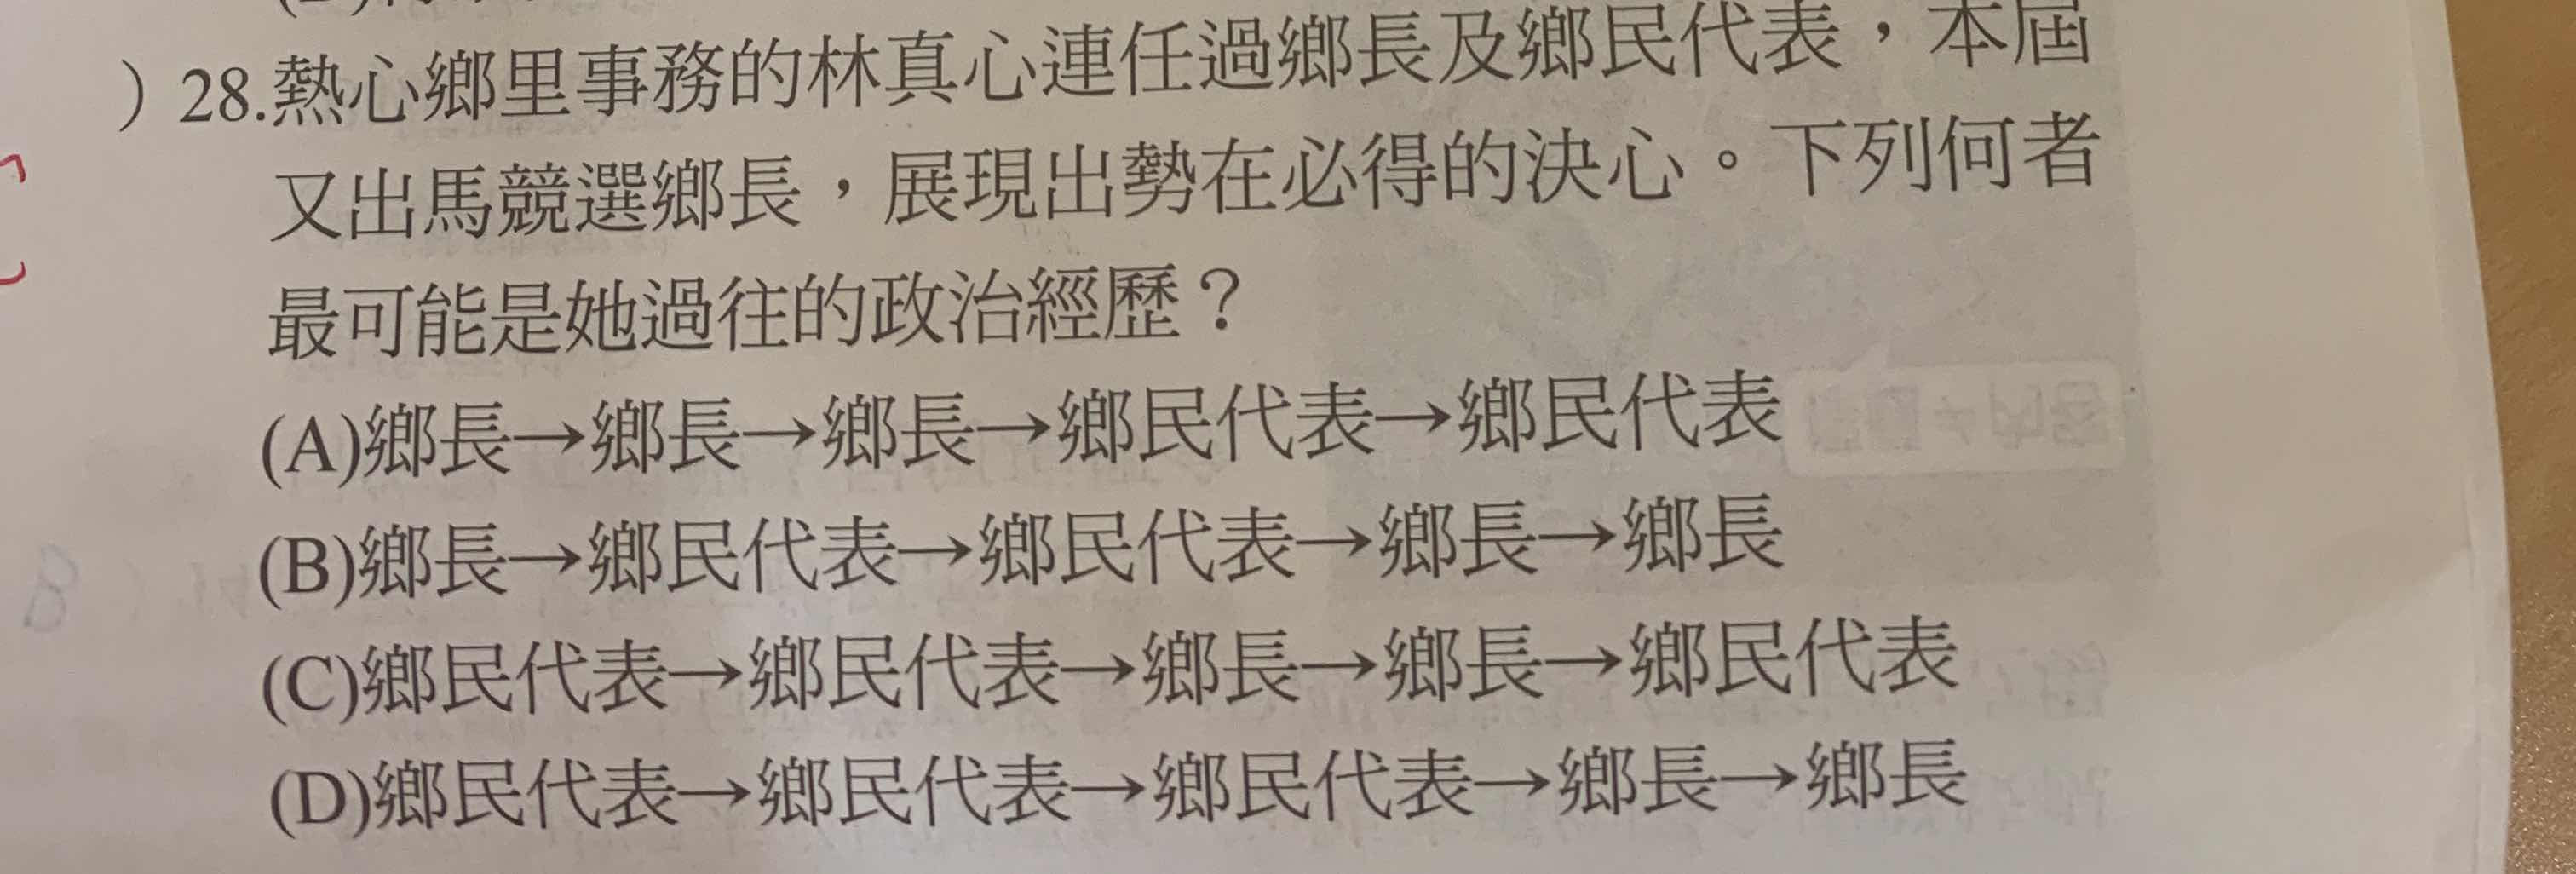 )28.熱心鄉里事務的林真心連任過鄉長及鄉民代表，本屆
又出馬競選鄉長，展現出勢在必得的決心。下列何者
最可能是她過往的政治經歷？
(A)鄉長→鄉長→鄉長→鄉民代表→鄉民代表
(B)鄉長→鄉民代表→鄉民代表→鄉長→鄉長
(C)鄉民代表→鄉民代表→鄉長→鄉長→鄉民代表
(D)鄉民代表→鄉民代表→鄉民代表→鄉長→鄉長